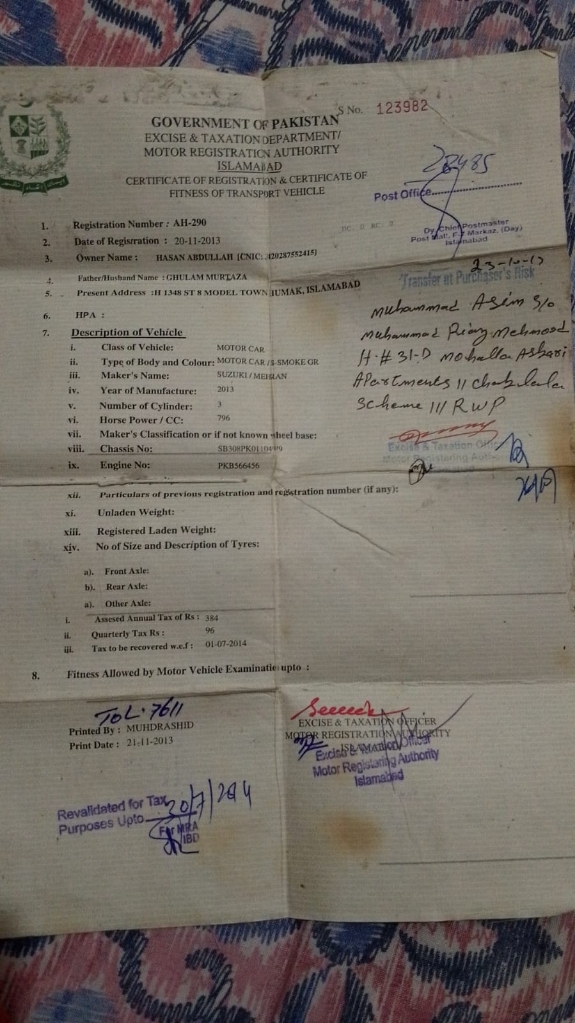 S No. 123982
GOVERNMENT OF PAKISTAN
EXCISE & TAXATION DEPARTMENT/
MOTOR REGISTRATION AUTHORITY
ISLAMABAD
CERTIFICATE OF REGISTRATION & CERTIFICATE OF
FITNESS OF TRANSPORT VEHICLE
Post Office
Dy. Chief Postmaster
Post Mall, F-7 Markaz, (Day)
Islamabad
1. Registration Number : AH-290
2. Date of Regisration : 20-11-2013
3. Owner Name : HASAN ABDULLAH [CNIC:
4. Father/Husband Name : GHULAM MURTAZA
5. Present Address :H 1348 ST 8 MODEL TOWN HUMAK, ISLAMABAD
6. HPA :
Transfer at Purchaser's Risk
Muhammad Asim S/o
Muhammad Riaz Mehmood
H-# 31-D Mohalla Askari
Apartments 11 Chaklala
Scheme III RWP
Excise & Taxation Officer
Motor Registering Authority
7. Description of Vehicle
i. Class of Vehicle: MOTOR CAR
ii. Type of Body and Colour: MOTOR CAR /S-SMOKE GR
iii. Maker's Name: SUZUKI / MEHRAN
iv. Year of Manufacture: 2013
v. Number of Cylinder: 3
vi. Horse Power / CC: 796
vii. Maker's Classification or if not known wheel base:
viii. Chassis No:
ix. Engine No: PKB566456
xii. Particulars of previous registration and registration number (if any):
xi. Unladen Weight:
xiii. Registered Laden Weight:
xiv. No of Size and Description of Tyres:
a). Front Axle:
b). Rear Axle:
a). Other Axle:
i. Assesed Annual Tax of Rs : 384
ii. Quarterly Tax Rs : 96
iii. Tax to be recovered w.e.f : 01-07-2014
8. Fitness Allowed by Motor Vehicle Examination upto :
TOL-7611
Printed By : MUHDRASHID
Print Date : 21-11-2013
EXCISE & TAXATION OFFICER
MOTOR REGISTRATION AUTHORITY
ISLAMABAD
Excise & Taxation Officer
Motor Registering Authority
Islamabad
Revalidated for Tax
Purposes Upto
For MRA
IBD